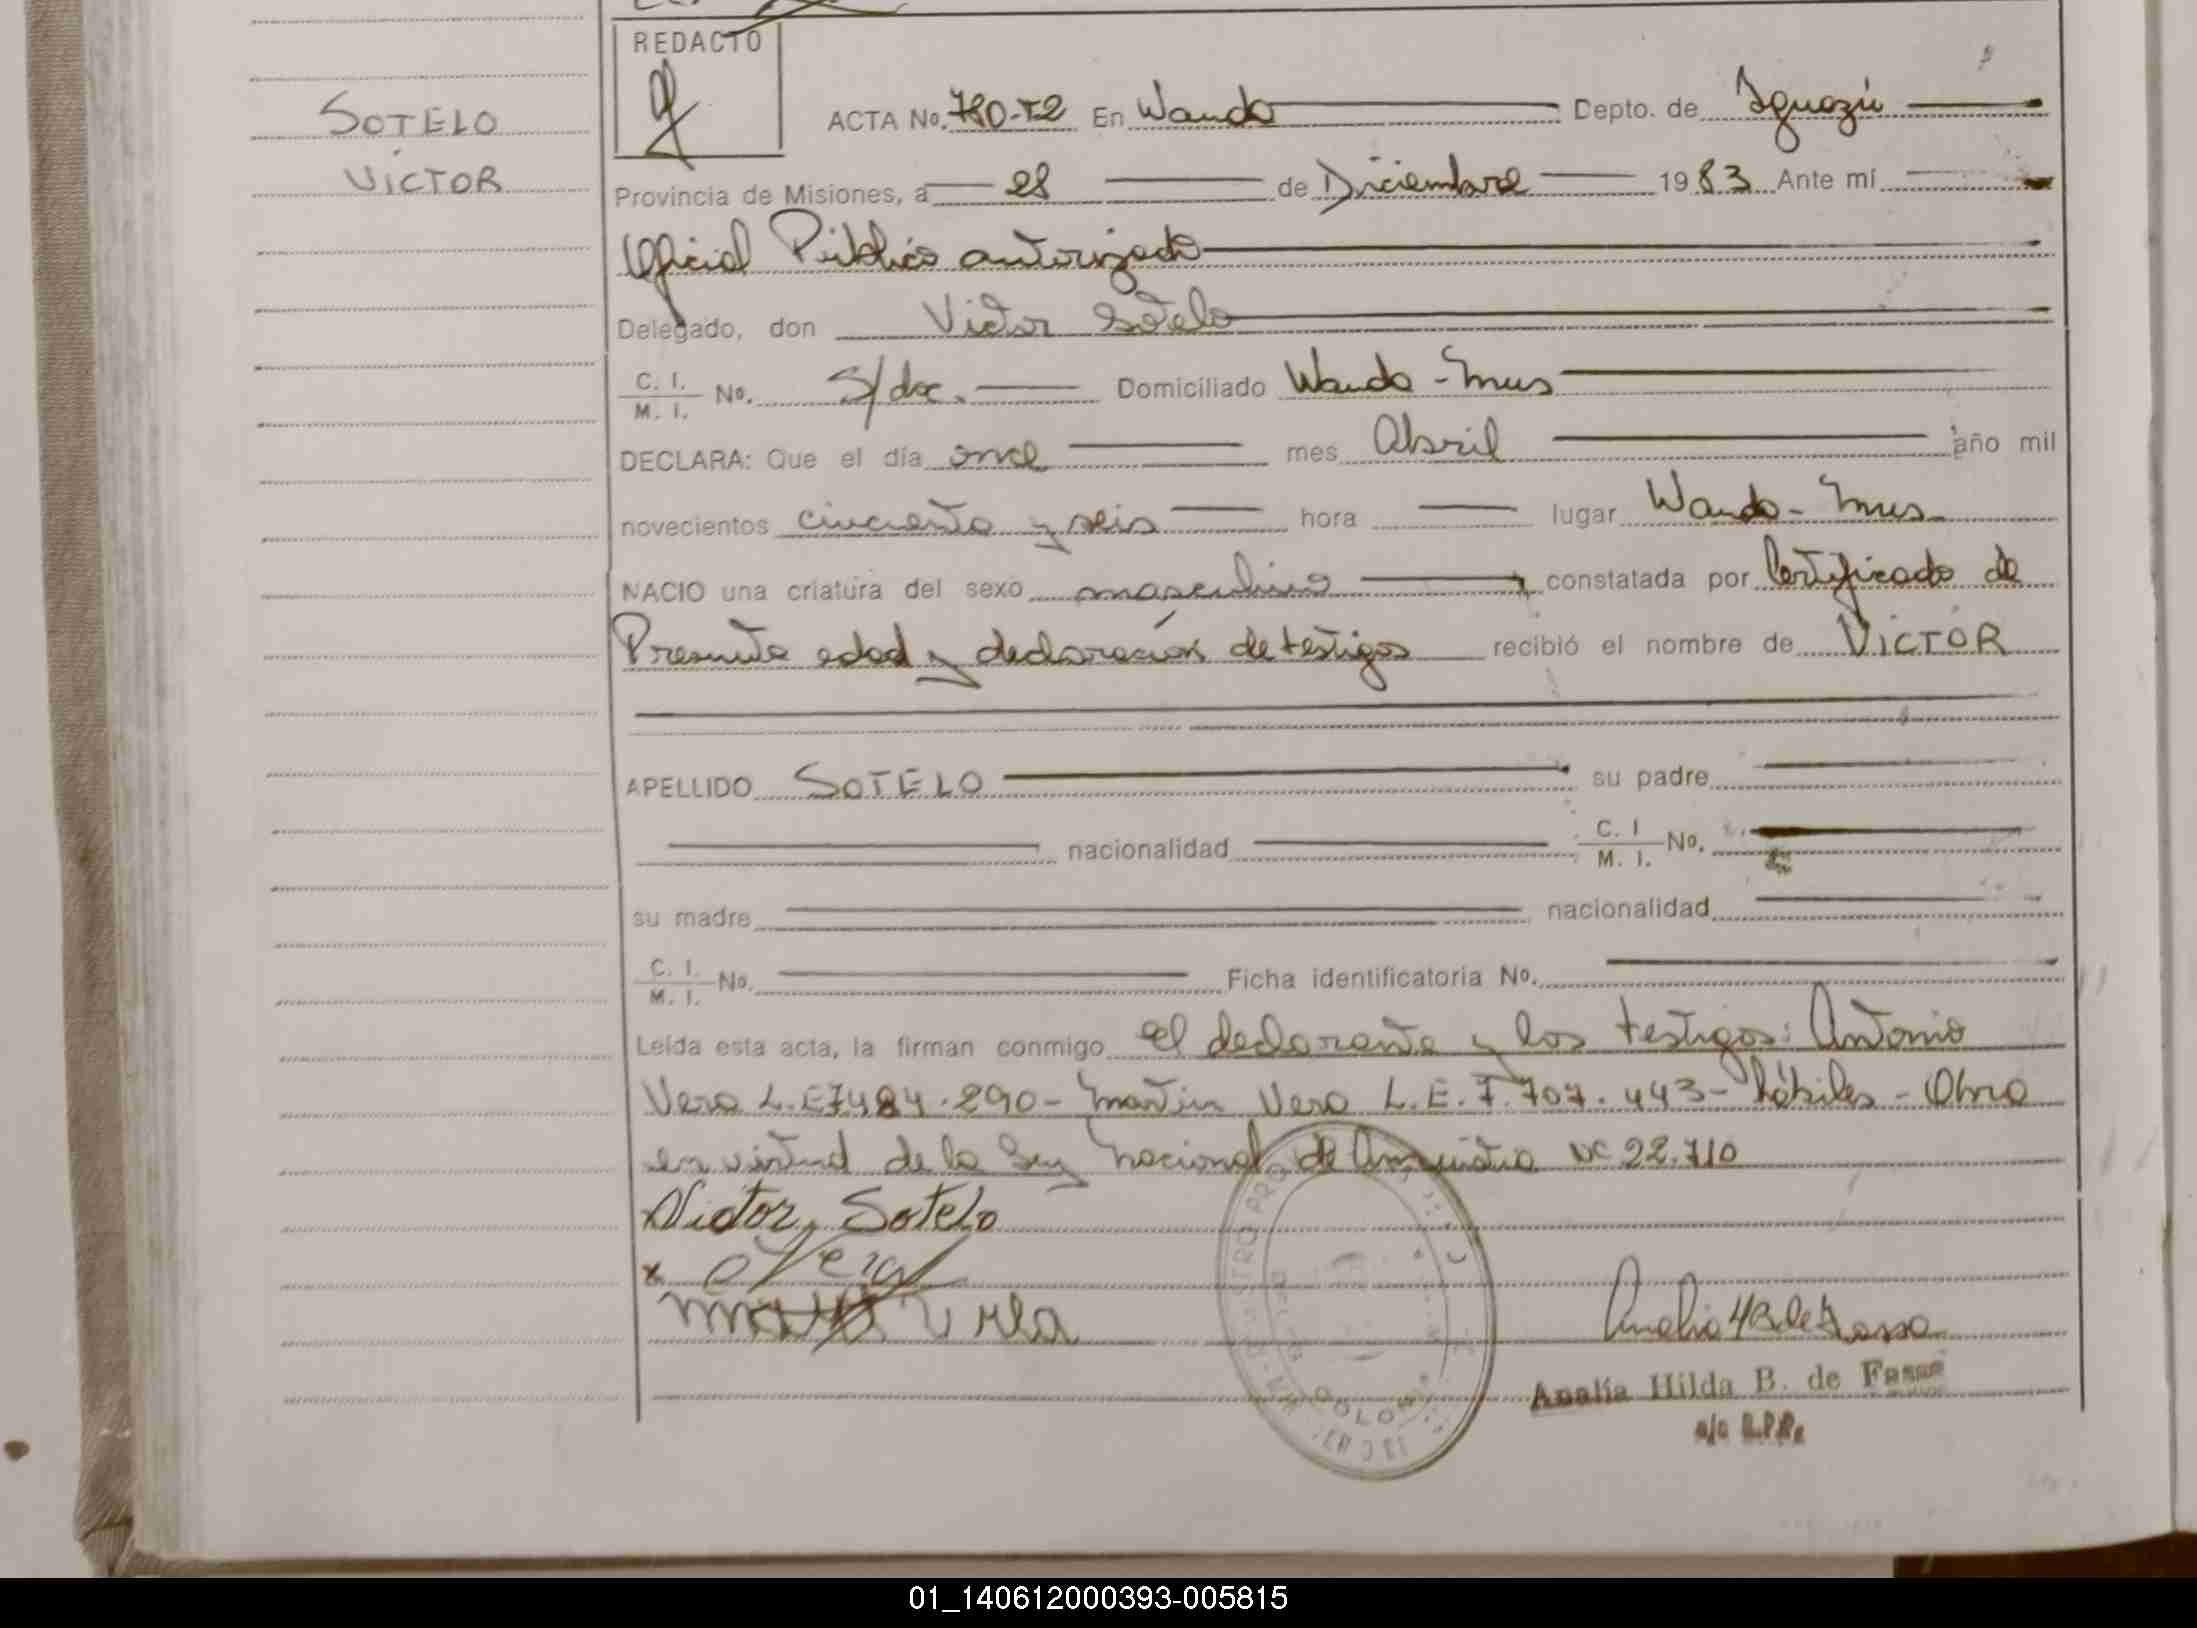 REDACTO
SOTELO
VICTOR
ACTA No. 780-T2 En Wanda Depto. de Iguazú
Provincia de Misiones, a 28 de Diciembre 1983 Ante mí
Oficial Público autorizado
Delegado, don Victor Sotelo
C. I. / M. I. No. S/doc. Domiciliado Wanda - Mnes
DECLARA: Que el día once mes Abril año mil
novecientos cincuenta y seis hora lugar Wanda - Mnes
NACIO una criatura del sexo masculino constatada por Certificado de
Presunta edad y declaración de testigos recibió el nombre de VICTOR
APELLIDO SOTELO su padre
nacionalidad C. I / M. I. No.
su madre nacionalidad
C. I. / M. I. No. Ficha identificatoria No.
Leída esta acta, la firman conmigo el declarante y los testigos: Antonio
Vera L.E 7484.290 - Martin Vera L.E. 7.707.443 - hábiles - Obra
en virtud de la Ley Nacional de Amnistia Nº 22.710
Victor, Sotelo
x
Vera
Analía Hilda B. de Fasso
a/c R.P.P.
01_140612000393-005815